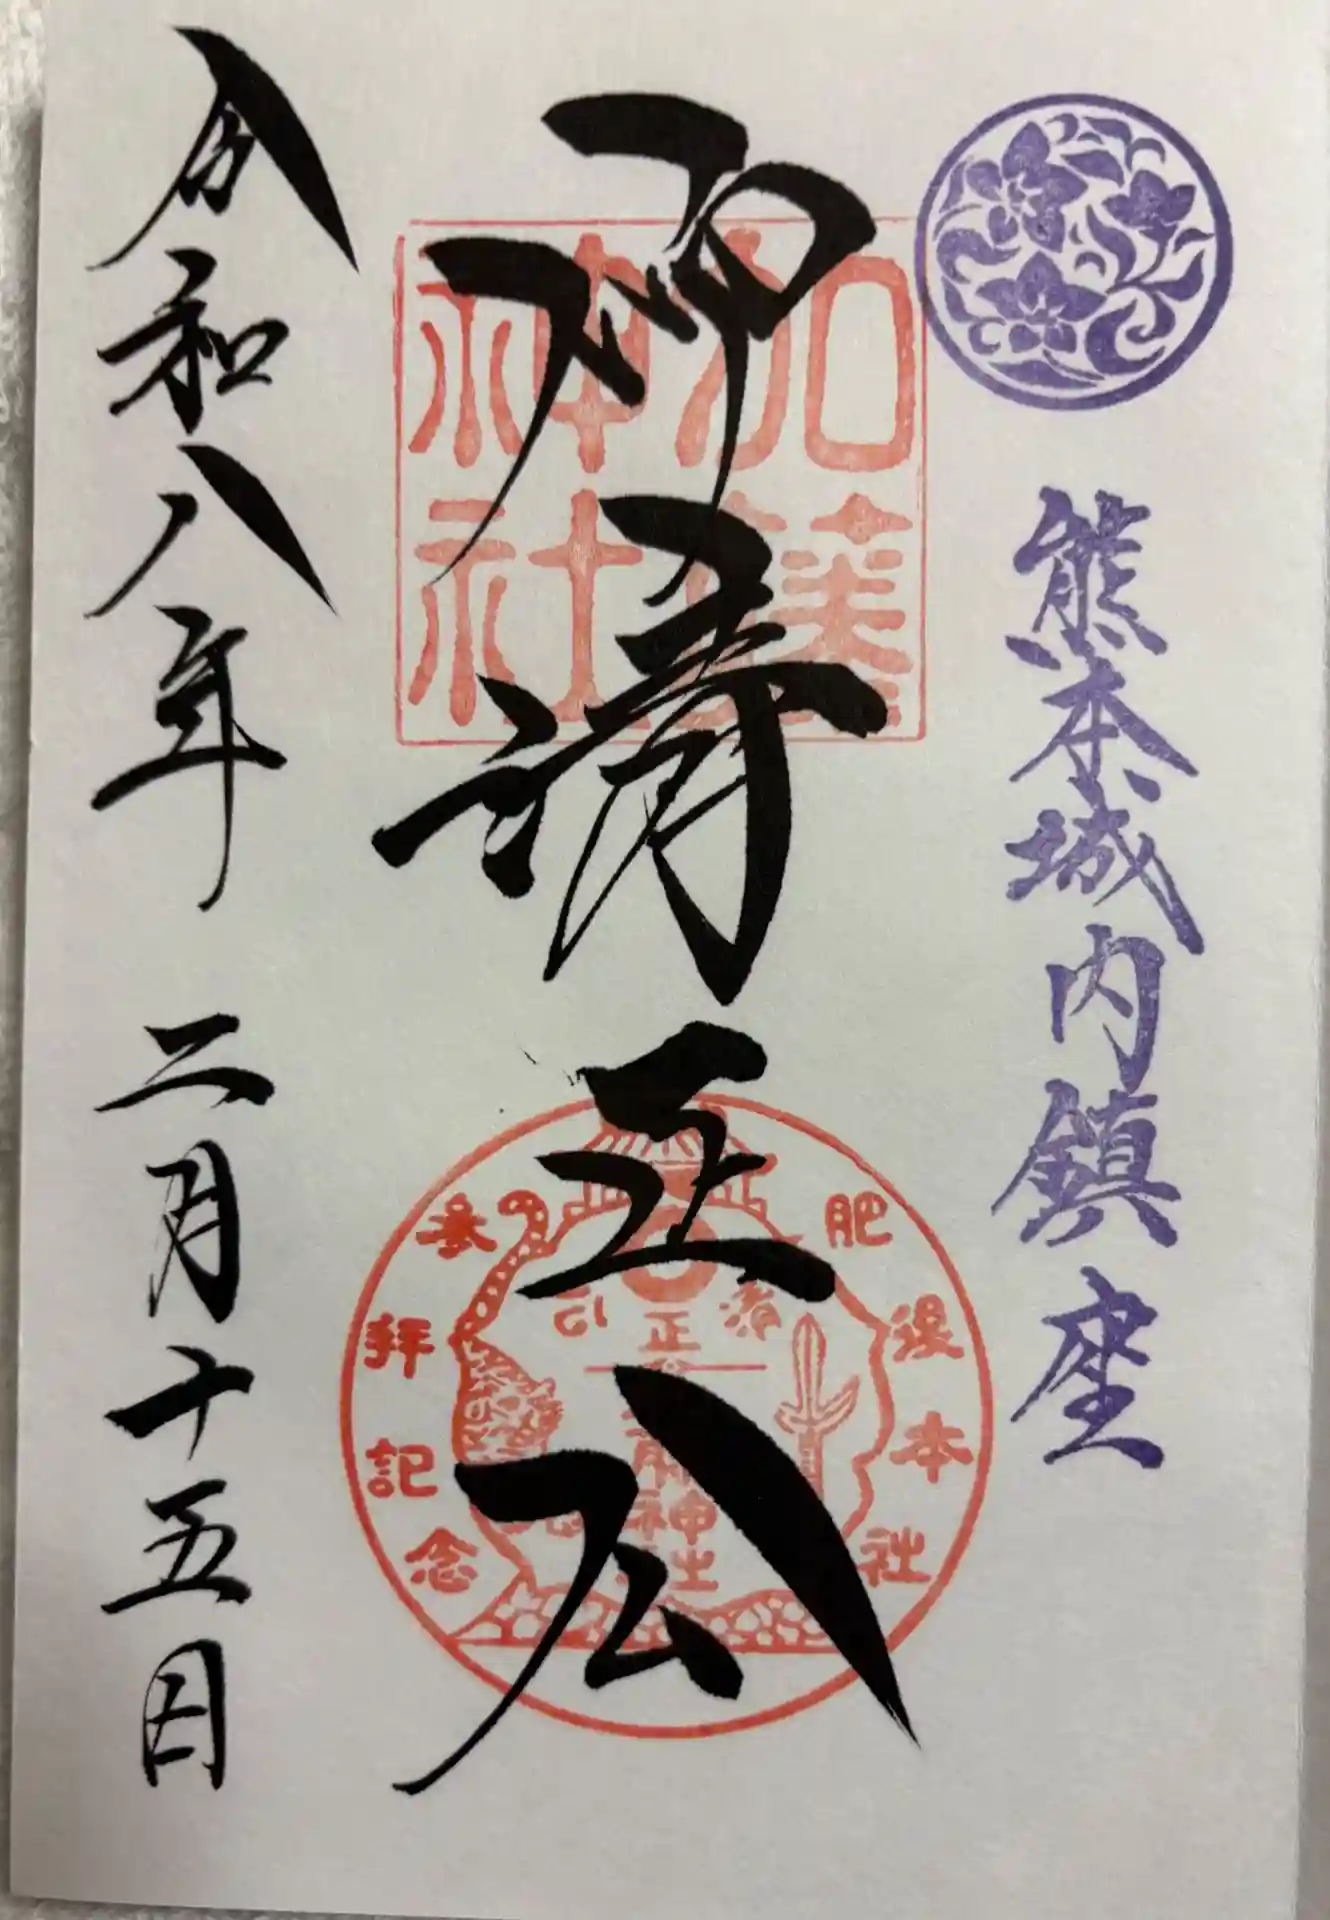 熊本城内鎮座
神清正公
加藤神社
肥後本社
参拝記念
清正公
神社
令和八年 二月十五日